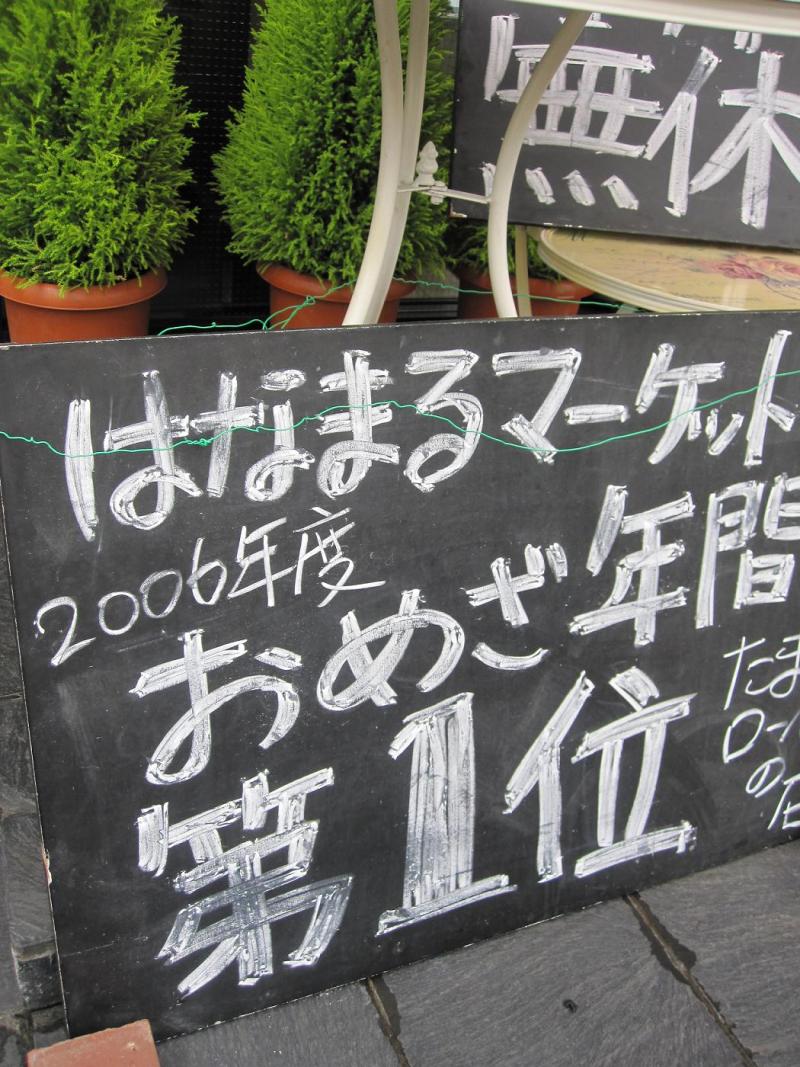 無休
はなまるマーケット
2006年度
おめざ年間
第1位
たま
ロー
の